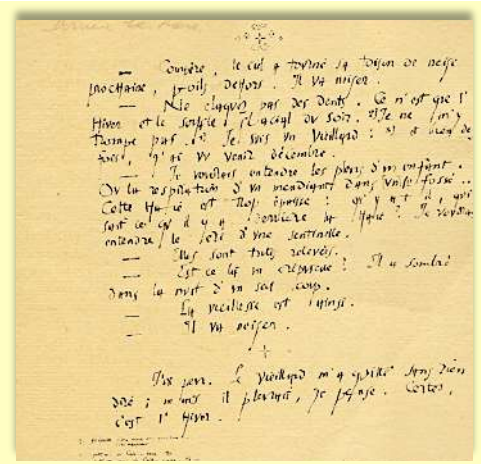 — Compère, le ciel a tourné sa toison de neige
prochaine, poils dehors. Il va neiger.
— Ne claquez pas des dents. Ce n'est que l'
Hiver et le souffle glacial du soir. Je ne m'y
trompe pas. Je suis un vieillard : et bien des
fois, j'ai vu venir décembre.
— Je voudrais entendre les pleurs d'un enfant.
Ou la respiration d'un mendiant dans un fossé..
Cette Haie est trop épaisse : qu'y a t il, qui
sait ce qu'il y a derrière la Haie ? Je voudrais
entendre le cri d'une sentinelle.
— Elles sont toutes relevées.
— Est ce là un crépuscule ? Il a sombré
dans la nuit d'un seul coup.
— La vieillesse est ainsi.
— Il va neiger.
J'ai peur. Le vieillard m'a quitté sans rien
dire ; mais il pleurait, je pense. Certes,
c'est l'Hiver.